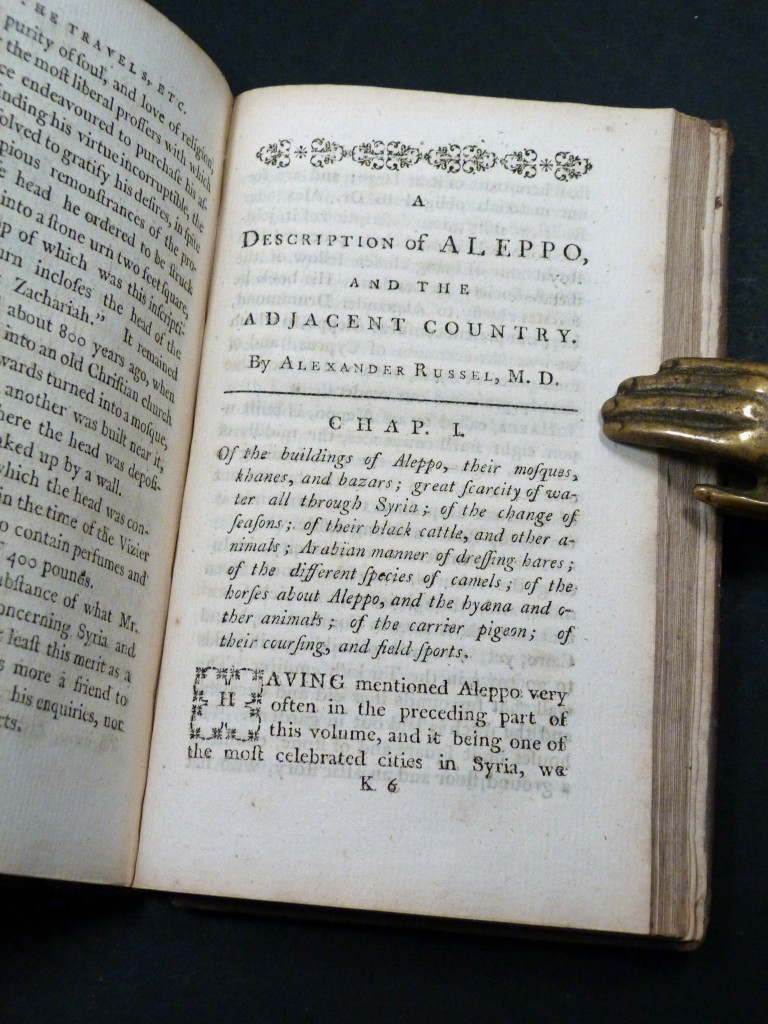 THE TRAVELS, ETC.
purity of soul, and love of religion,
the most liberal proffers with which
ce endeavoured to purchase his as-
nding his virtue incorruptible, the
olved to gratify his desires, in spite
pious remonstrances of the pro-
head he ordered to be struck
into a stone urn two feet square,
p of which was this inscripti-
urn incloses the head of the
Zachariah." It remained
about 800 years ago, when
into an old Christian church
wards turned into a mosque,
another was built near it,
here the head was deposi-
aked up by a wall.
which the head was con-
n the time of the Vizier
o contain perfumes and
400 pounds.
ubstance of what Mr.
oncerning Syria and
least this merit as a
s more a friend to
his enquiries, nor
cts.
A
DESCRIPTION of ALEPPO,
AND THE
ADJACENT COUNTRY.
By ALEXANDER RUSSEL, M. D.
CHAP. I.
Of the buildings of Aleppo, their moſques,
khanes, and bazars; great ſcarcity of wa-
ter all through Syria; of the change of
ſeaſons; of their black cattle, and other a-
nimals; Arabian manner of dreſſing hares;
of the different ſpecies of camels; of the
horſes about Aleppo, and the hyæna and o-
ther animals; of the carrier pigeon; of
their courſing, and field ſports.
HAVING mentioned Aleppo very
often in the preceding part of
this volume, and it being one of
the moſt celebrated cities in Syria, we
K 6